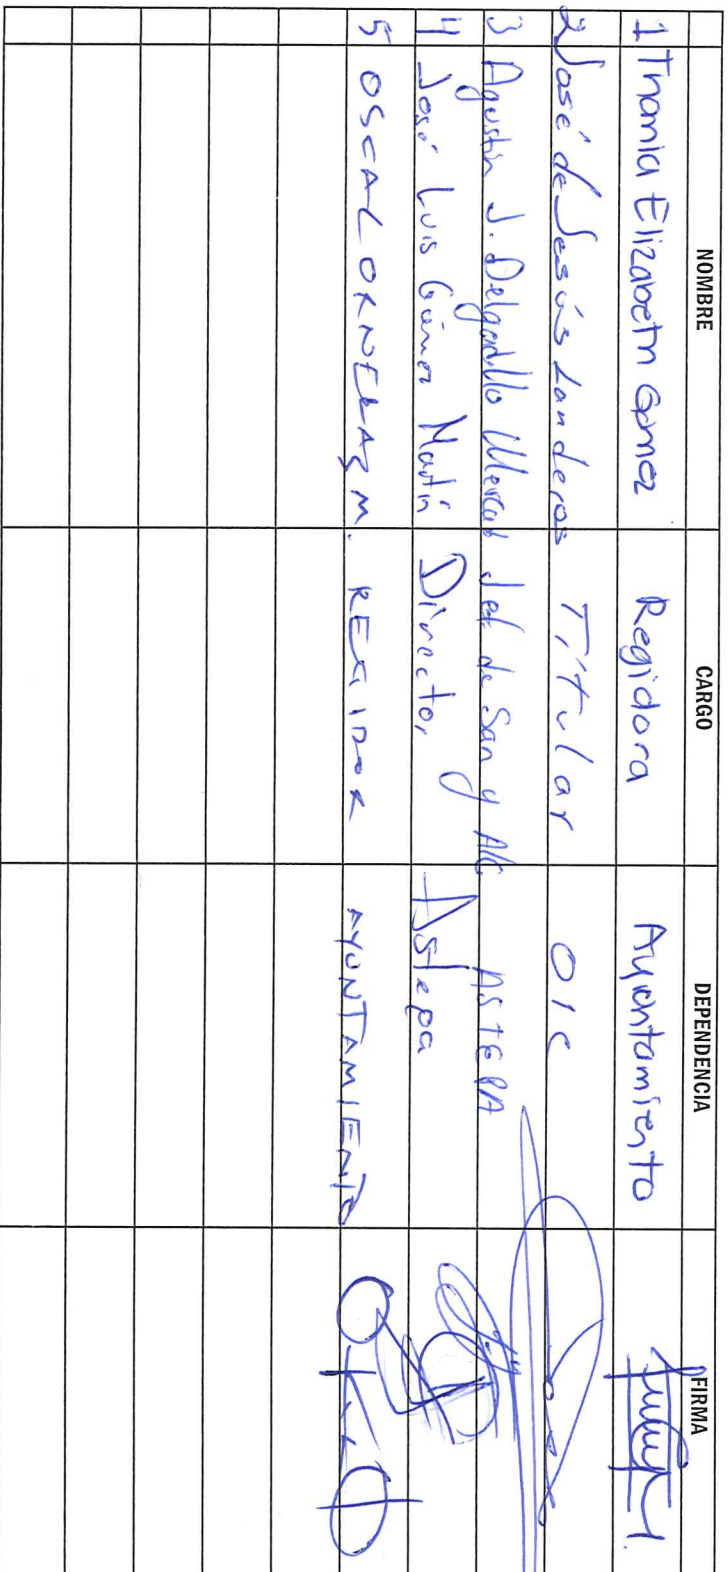 NOMBRE CARGO DEPENDENCIA FIRMA
1 Thamia Elizabeth Gómez Regidora Ayuntamiento
2 José de Jesús Landeros Titular OIC
3 Agustín J. Delgadillo Jef de San y Alc ASTEPA
4 José Luis Gómez Martín Director Astepa
5 OSCAR ORNELAS M. REGIDOR AYUNTAMIENTO